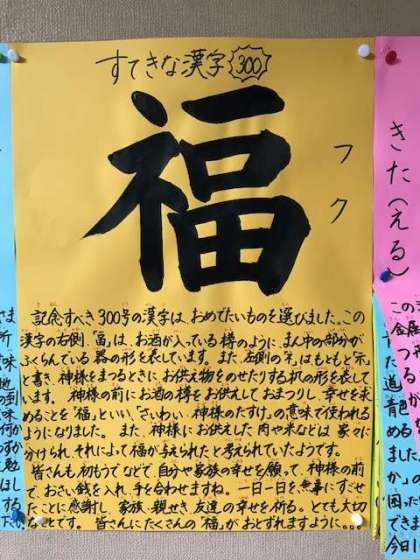 すてきな漢字 300
福
フク
記念すべき300号の漢字は、おめでたいものを選びました。この
漢字の右側、「畐」は、お酒が入っている樽のように、まん中の部分が
ふくらんでいる器の形を表しています。また、左側の「ネ」はもともと「示」
と書き、神様をまつるときに、お供え物をのせたりする机の形を表して
います。神様の前にお酒の樽をお供えしておまつりし、幸せを求
めることを「福」といい、「さいわい、神様のたすけ」の意味で使われる
ようになりました。また、神様にお供えした肉や米などは、家々に
分けられ、それによって福が与えられたと考えられていたようです。
皆さんも初もうでなどで自分や家族の幸せを願って、神様の前
で、おさい銭を入れ、手を合わせますね。一日一日を無事にすごせ
たことに感謝し、家族、親せき、友達の幸せを祈る。とても大切
なことです。皆さんにたくさんの「福」がおとずれますように。。。
きた(える)